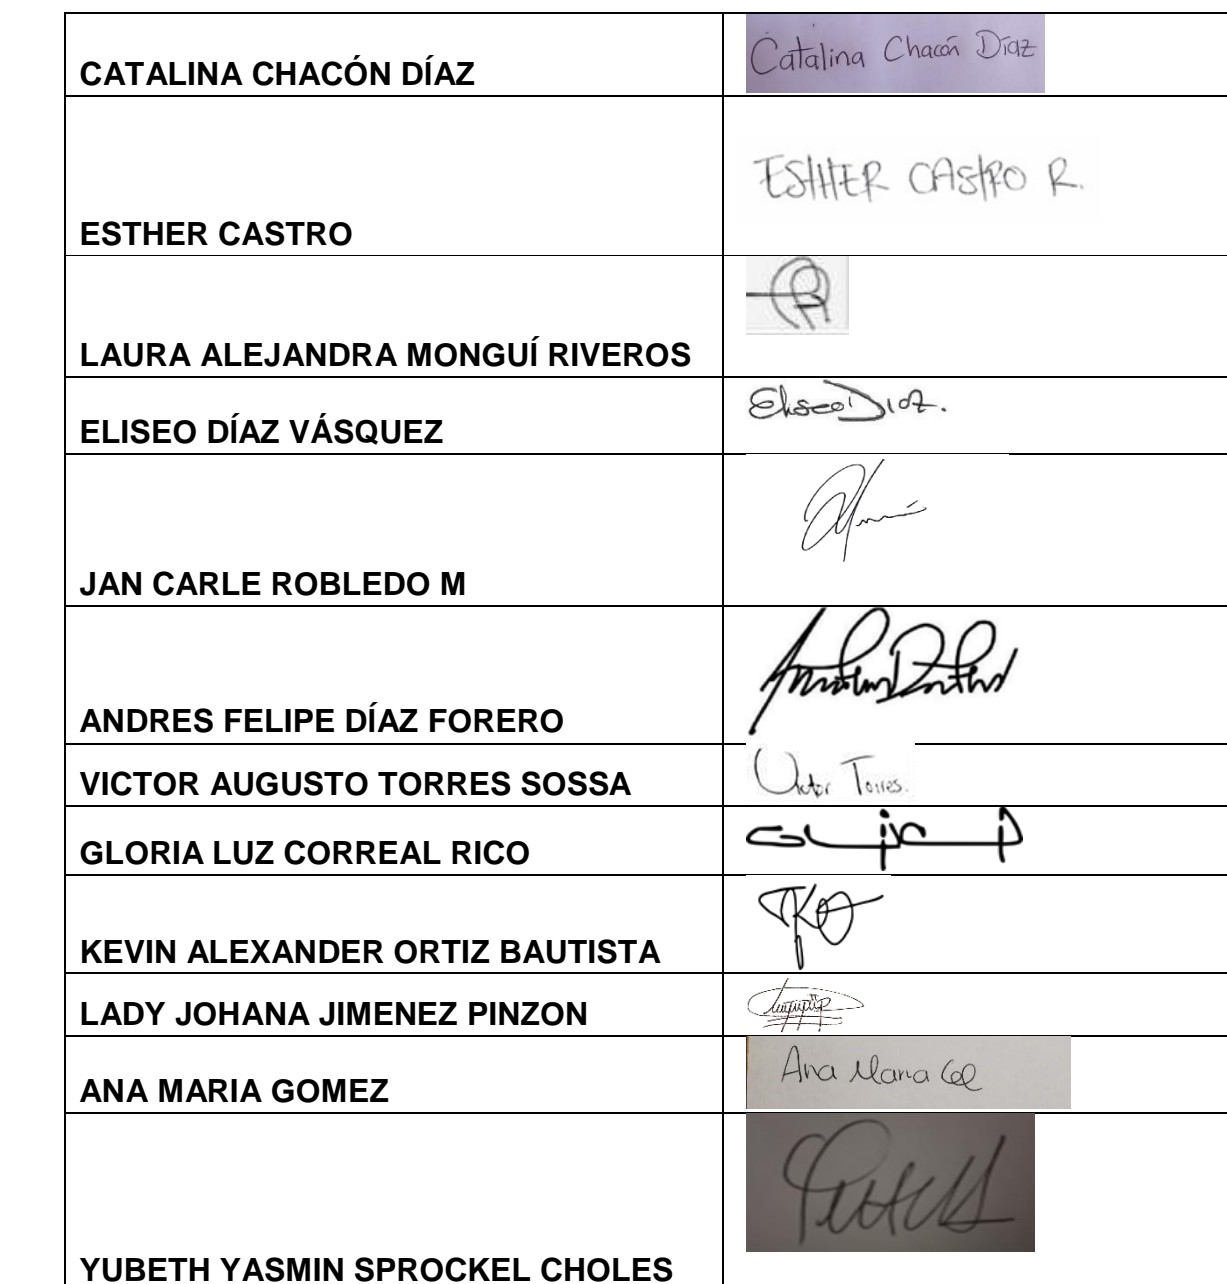 CATALINA CHACÓN DÍAZ Catalina Chacón Díaz
ESTHER CASTRO ESTHER CASTRO R.
LAURA ALEJANDRA MONGUÍ RIVEROS
ELISEO DÍAZ VÁSQUEZ Eliseo Díaz.
JAN CARLE ROBLEDO M
ANDRES FELIPE DÍAZ FORERO
VICTOR AUGUSTO TORRES SOSSA Victor Torres.
GLORIA LUZ CORREAL RICO
KEVIN ALEXANDER ORTIZ BAUTISTA
LADY JOHANA JIMENEZ PINZON
ANA MARIA GOMEZ Ana Maria
YUBETH YASMIN SPROCKEL CHOLES